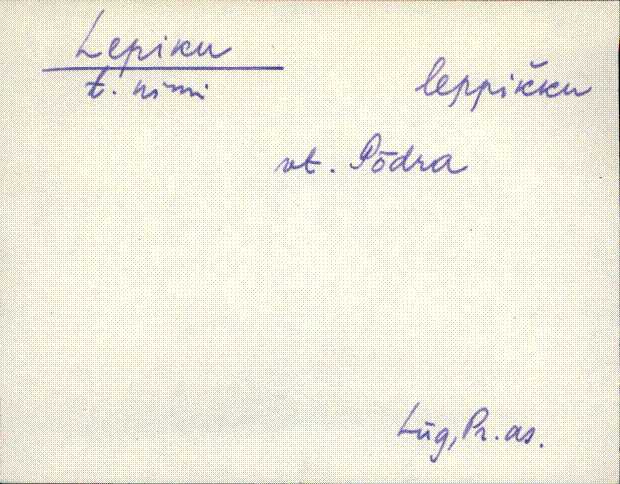 Lepiku
t. nimi
leppikku
vt. Põdra
Lüg, Pr. as.